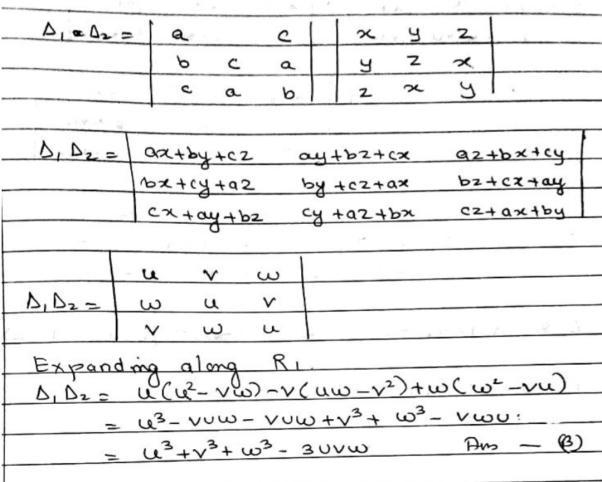 Δ₁ Δ₂ = | a c | | x y z |
| b c a | | y z x |
| c a b | | z x y |
Δ₁ Δ₂ = | ax+by+cz ay+bz+cx az+bx+cy |
| bx+cy+az by+cz+ax bz+cx+ay |
| cx+ay+bz cy+az+bx cz+ax+by |
| u v w |
Δ₁ Δ₂ = | w u v |
| v w u |
Expanding along R₁.
Δ₁ Δ₂ = u(u²-vw)-v(uw-v²)+w(w²-vu)
= u³-vuw-vuw+v³+w³-vwu.
= u³+v³+w³-3uvw Ans - (B)